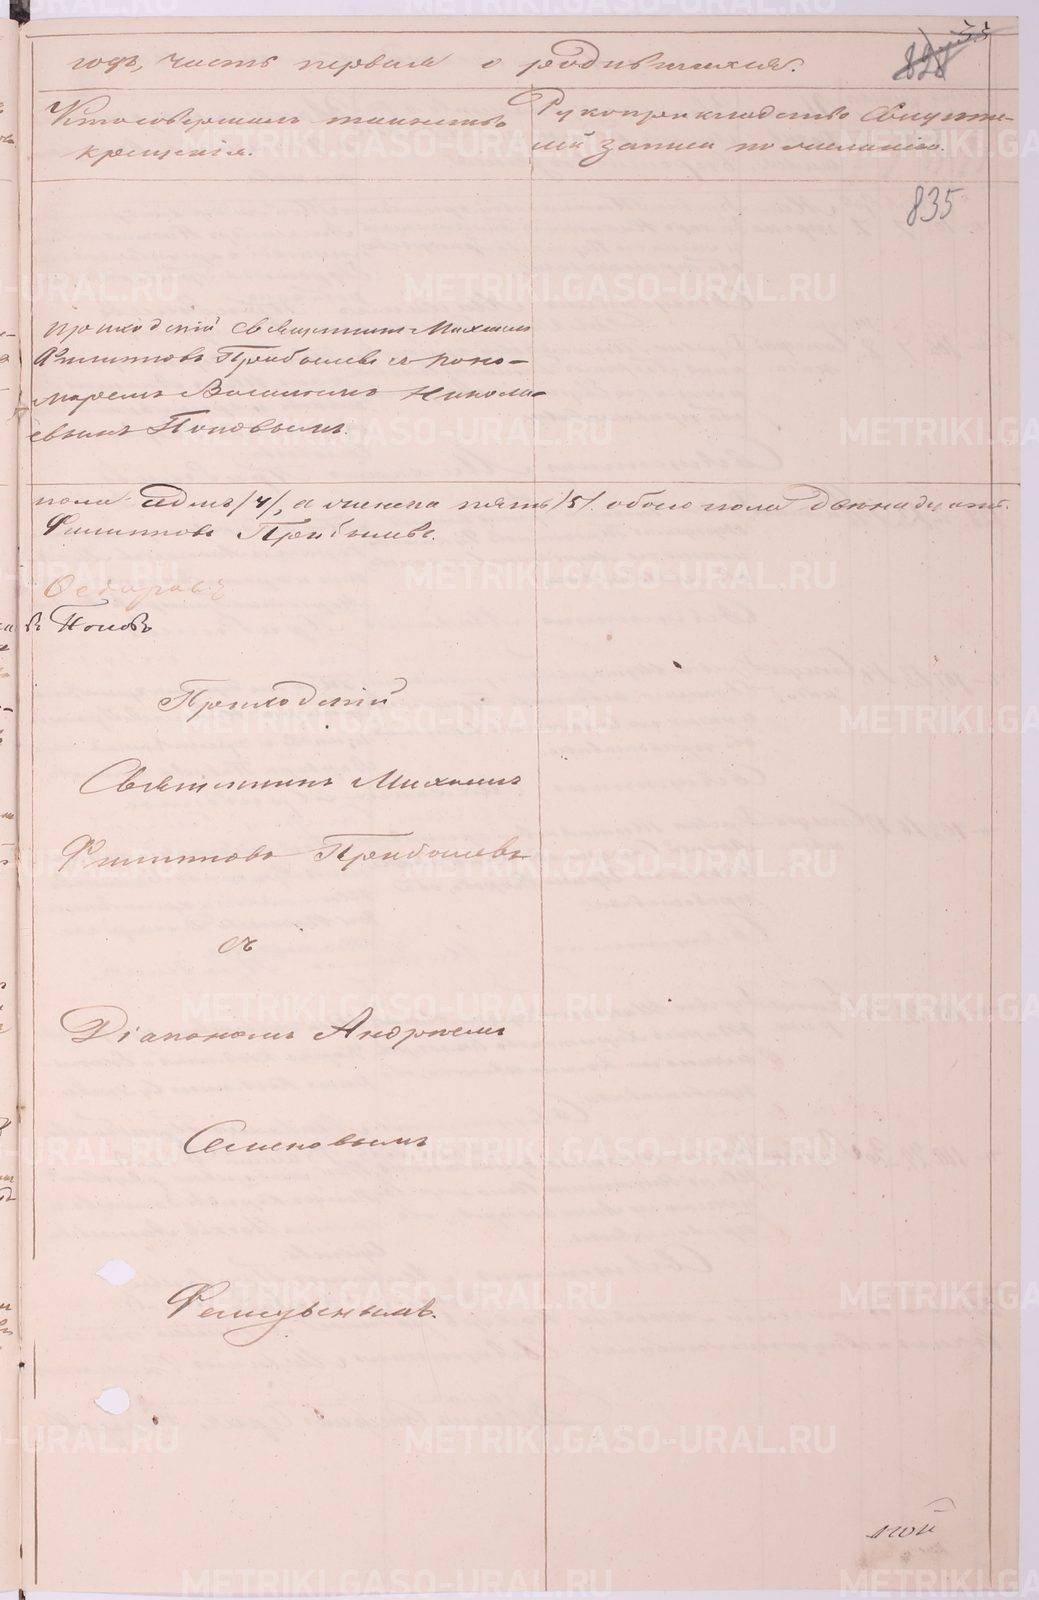 годъ, часть первая о родившихся.
828
Кто совершалъ таинство крещенія.
Рукоприкладство свидѣтелей записи по желанію.
835
Приходскій Священникъ Михаилъ
Филипповъ Прибылевъ съ поно-
маремъ Василіемъ Никола-
евымъ Поповымъ.
пола седмь /7/, а женска пять /5/. обоего пола двенадцать.
Филипповъ Прибылевъ.
Федоровъ
въ Поповъ
Приходскій
Священникъ Михаилъ
Филипповъ Прибылевъ
съ
Діакономъ Андреемъ
Семеновымъ